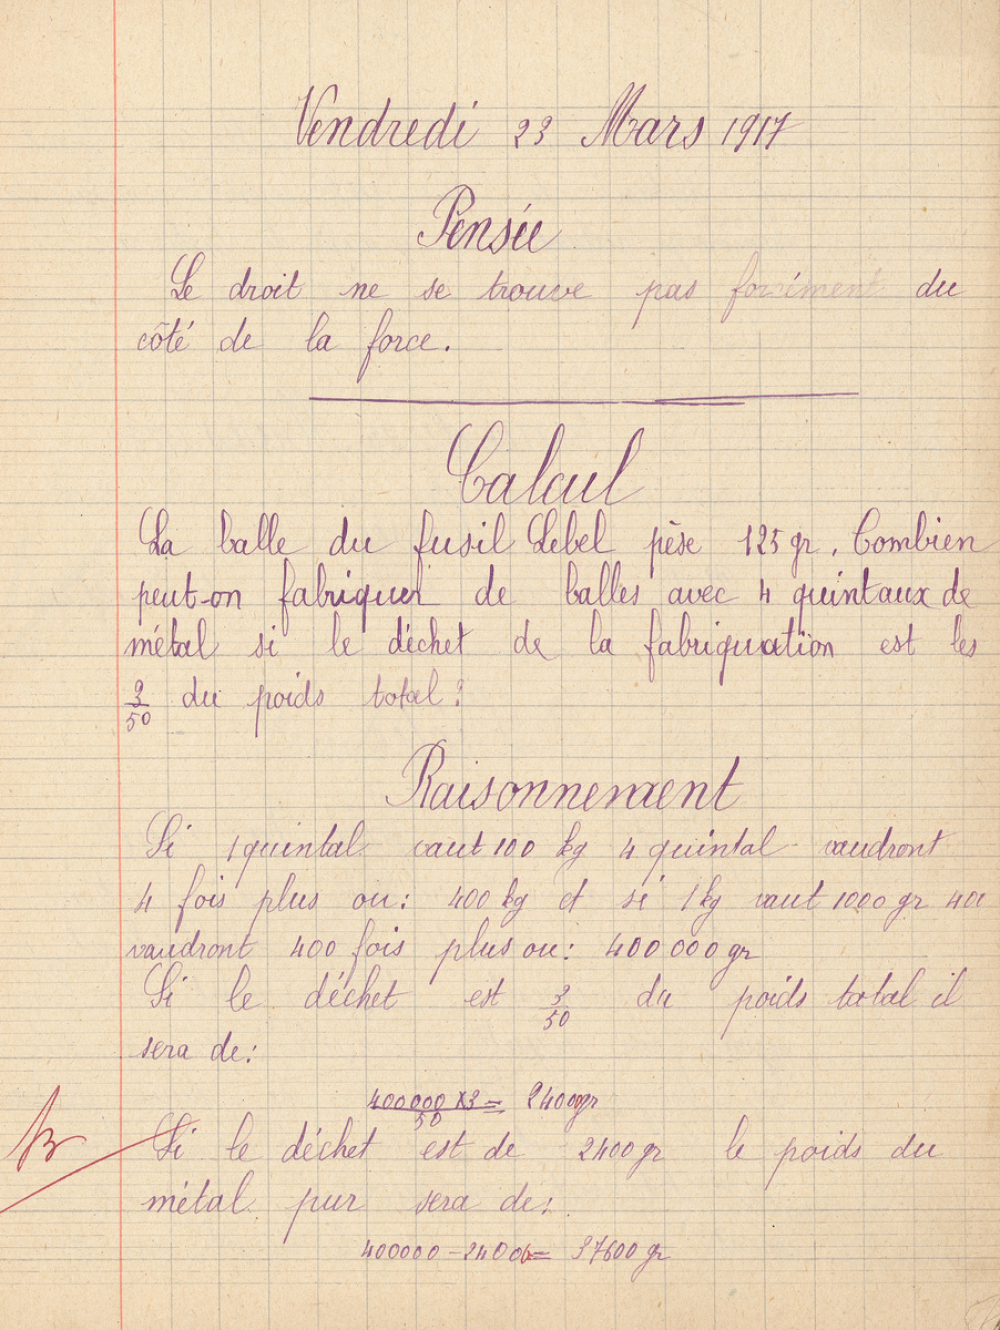 Vendredi 23 Mars 1917
Pensée
Le droit ne se trouve pas forcément du
côté de la force.
Calcul
La balle du fusil Lebel pèse 125 gr. Combien
peut-on fabriquer de balles avec 4 quintaux de
métal si le déchet de la fabriquation est les
3/50 du poids total?
Raisonnement
Si 1 quintal vaut 100 kg 4 quintal vaudront
4 fois plus ou: 400 kg et si 1 kg vaut 1000 gr 400
vaudront 400 fois plus ou: 400 000 gr
Si le déchet est 3/50 du poids total il
sera de:
400000 x 3 / 50 = 24000 gr
Si le déchet est de 2400 gr le poids du
métal pur sera de:
400000 - 2400 = 37600 gr